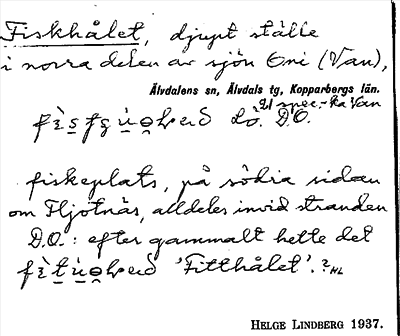 Fiskhålet, djupt ställe
i norra delen av sjön Oni (Van),
Älvdalens sn, Älvdals tg, Kopparbergs län.
Lö. D.O.
fiskeplats, på södra sidan
om Fljotnäs, alldeles invid stranden
D.O.: efter gammalt hette det
'Fitthålet'.? HL
HELGE LINDBERG 1937.